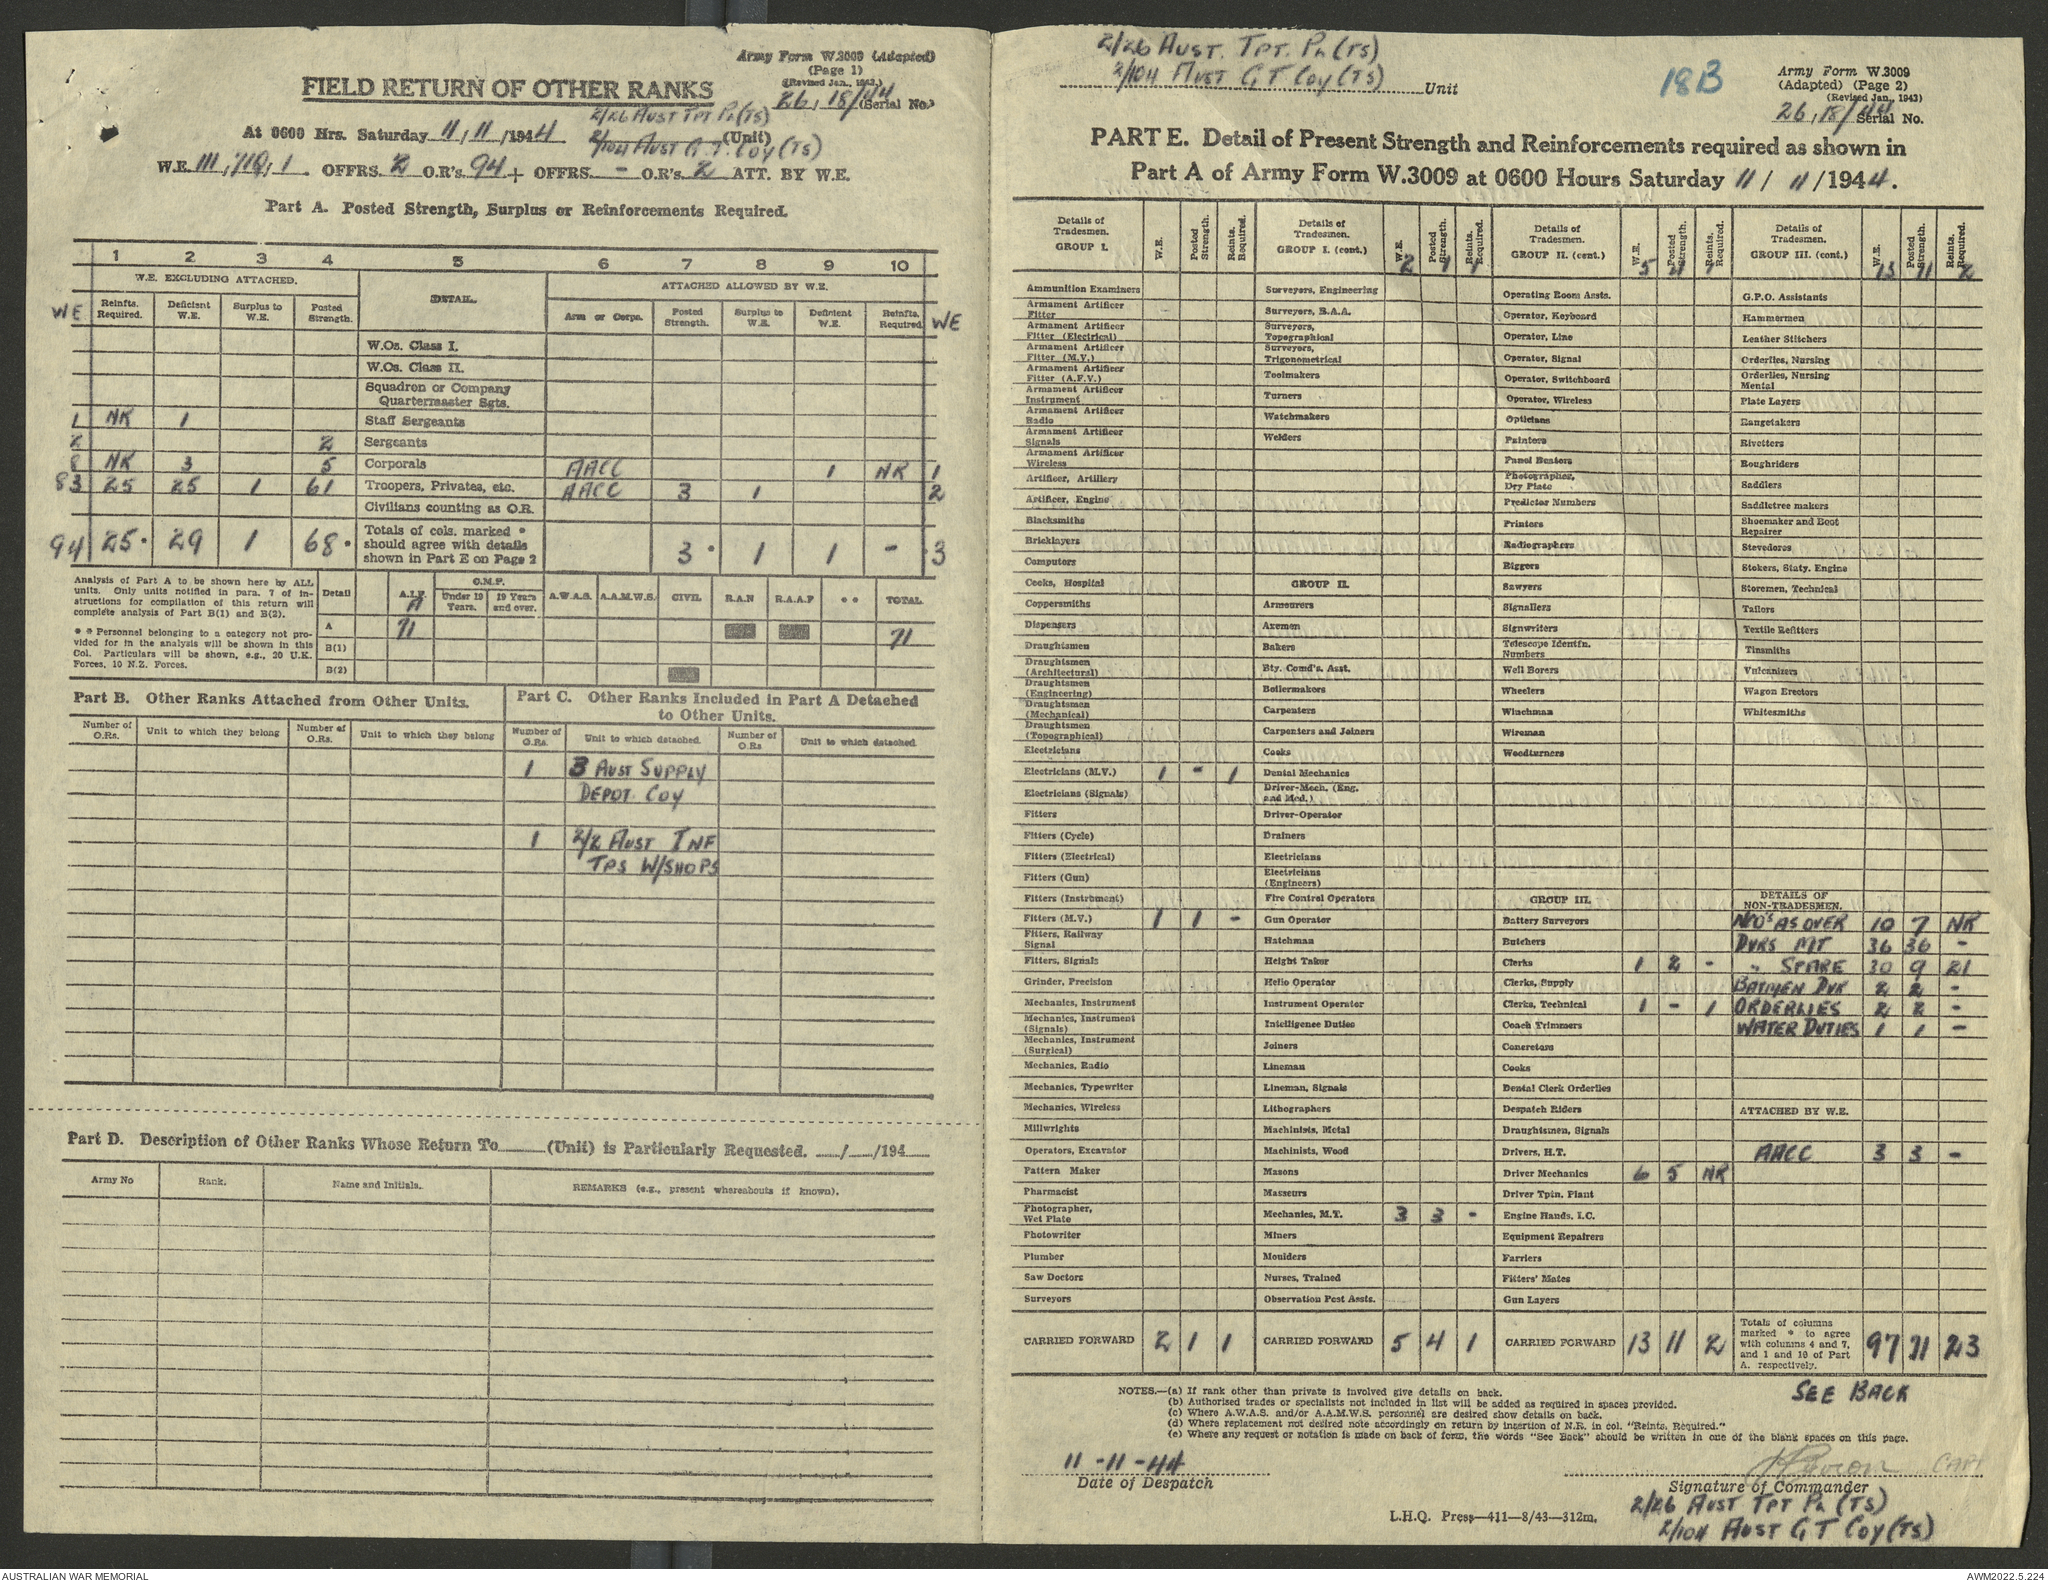 Army Form W.3009 (Adapted)
(Page 1)
(Revised Jan., 1943.)
FIELD RETURN OF OTHER RANKS
26, 18/44 (Serial No.)
2/26 AUST TPT PL (TS)
At 0600 Hrs. Saturday 11/11/1944 2/104 AUST G.T. COY (TS) (Unit)
W.E. III, 710, 1. OFFRS. 2 O.R's. 94 + OFFRS. - O.R's. 2 ATT. BY W.E.
Part A. Posted Strength, Surplus or Reinforcements Required.
1 2 3 4 5 6 7 8 9 10
W.E. EXCLUDING ATTACHED. DETAIL. ATTACHED ALLOWED BY W.E.
WE Reinfts. Required. Deficient W.E. Surplus to W.E. Posted Strength. Arm or Corps. Posted Strength. Surplus to W.E. Deficient W.E. Reinfts. Required. WE
W.Os. Class I.
W.Os. Class II.
Squadron or Company
Quartermaster Sgts.
1 NR 1 Staff Sergeants
2 2 Sergeants
8 NR 3 5 Corporals AACC 1 NR 1
83 25 25 1 61 Troopers, Privates, etc. AACC 3 1 2
Civilians counting as O.R.
94 25 * 29 1 68 * Totals of cols. marked * should agree with details shown in Part E on Page 2 3 * 1 1 - 3
Analysis of Part A to be shown here by ALL
units. Only units notified in para. 7 of in-
structions for compilation of this return will
complete analysis of Part B(1) and B(2).
* * Personnel belonging to a category not pro-
vided for in the analysis will be shown in this
Col. Particulars will be shown, e.g., 20 U.K.
Forces, 10 N.Z. Forces.
Detail A.I.F. C.M.F. Under 19 Years. 19 Years and over. A.W.A.S. A.A.M.W.S. CIVIL R.A.N R.A.A.F * * TOTAL
A 71 71
B(1)
B(2)
Part B. Other Ranks Attached from Other Units.
Part C. Other Ranks Included in Part A Detached
to Other Units.
Number of O.Rs. Unit to which they belong Number of O.Rs. Unit to which they belong Number of O.Rs. Unit to which detached. Number of O.Rs Unit to which detached.
1 3 AUST SUPPLY
DEPOT COY
1 2/2 AUST INF
TPS W/SHOPS
Part D. Description of Other Ranks Whose Return To (Unit) is Particularly Requested. / /194
Army No Rank. Name and Initials. REMARKS (e.g., present whereabouts if known).
2/26 AUST. TPT. PL (TS)
2/104 AUST G T COY (TS) Unit
18B
Army Form W.3009
(Adapted) (Page 2)
(Revised Jan., 1943)
26, 18/44 Serial No.
PART E. Detail of Present Strength and Reinforcements required as shown in
Part A of Army Form W.3009 at 0600 Hours Saturday 11/11/1944.
Details of Tradesmen. GROUP I. W.E. Posted Strength. Reints. Required.
Ammunition Examiners
Armament Artificer Fitter
Armament Artificer Fitter (Electrical)
Armament Artificer Fitter (M.V.)
Armament Artificer Fitter (A.F.V.)
Armament Artificer Instrument
Armament Artificer Radio
Armament Artificer Signals
Armament Artificer Wireless
Artificer, Artillery
Artificer, Engine
Blacksmiths
Bricklayers
Computors
Cooks, Hospital
Coppersmiths
Dispensers
Draughtsmen
Draughtsmen (Architectural)
Draughtsmen (Engineering)
Draughtsmen (Mechanical)
Draughtsmen (Topographical)
Electricians
Electricians (M.V.) 1 - 1
Electricians (Signals)
Fitters
Fitters (Cycle)
Fitters (Electrical)
Fitters (Gun)
Fitters (Instrument)
Fitters (M.V.) 1 1 -
Fitters, Railway Signal
Fitters, Signals
Grinder, Precision
Mechanics, Instrument
Mechanics, Instrument (Signals)
Mechanics, Instrument (Surgical)
Mechanics, Radio
Mechanics, Typewriter
Mechanics, Wireless
Millwrights
Operators, Excavator
Pattern Maker
Pharmacist
Photographer, Wet Plate
Photowriter
Plumber
Saw Doctors
Surveyors
CARRIED FORWARD 2 1 1
Details of Tradesmen. GROUP I. (cont.) W.E. Posted Strength. Reints. Required. 2 1 1
Surveyors, Engineering
Surveyors, R.A.A.
Surveyors, Topographical
Surveyors, Trigonometrical
Toolmakers
Turners
Watchmakers
Welders
GROUP II.
Armourers
Axemen
Bakers
Bty. Comd's. Asst.
Boilermakers
Carpenters
Carpenters and Joiners
Cooks
Dental Mechanics
Driver-Mech. (Eng. and Med.)
Driver-Operator
Drainers
Electricians
Electricians (Engineers)
Fire Control Operators
Gun Operator
Hatchman
Height Taker
Helio Operator
Instrument Operator
Intelligence Duties
Joiners
Lineman
Lineman, Signals
Lithographers
Machinists, Metal
Machinists, Wood
Masons
Masseurs
Mechanics, M.T. 3 3 -
Miners
Moulders
Nurses, Trained
Observation Post Assts.
CARRIED FORWARD 5 4 1
Details of Tradesmen. GROUP II. (cont.) W.E. Posted Strength. Reints. Required. 5 4 1
Operating Room Assts.
Operator, Keyboard
Operator, Line
Operator, Signal
Operator, Switchboard
Operator, Wireless
Opticians
Painters
Panel Beaters
Photographer, Dry Plate
Predictor Numbers
Printers
Radiographers
Riggers
Sawyers
Signallers
Signwriters
Telescope Identfn. Numbers
Well Borers
Wheelers
Winchman
Wireman
Woodturners
GROUP III.
Battery Surveyors
Butchers
Clerks 1 2 -
Clerks, Supply
Clerks, Technical 1 - 1
Coach Trimmers
Concretors
Cooks
Dental Clerk Orderlies
Despatch Riders
Draughtsmen, Signals
Drivers, H.T.
Driver Mechanics 6 5 NR
Driver Tptn. Plant
Engine Hands, I.C.
Equipment Repairers
Farriers
Fitters' Mates
Gun Layers
CARRIED FORWARD 13 11 2
Details of Tradesmen. GROUP III. (cont.) W.E. Posted Strength. Reints. Required. 13 11 2
G.P.O. Assistants
Hammermen
Leather Stitchers
Orderlies, Nursing
Orderlies, Nursing Mental
Plate Layers
Rangetakers
Rivetters
Roughriders
Saddlers
Saddletree makers
Shoemaker and Boot Repairer
Stevedores
Stokers, Staty. Engine
Storemen, Technical
Tailors
Textile Refitters
Tinsmiths
Vulcanizers
Wagon Erectors
Whitesmiths
DETAILS OF NON-TRADESMEN.
NCO's AS OVER 10 7 NR
DVRS MT 36 36 -
" SPARE 30 9 21
BATMEN DVR 2 2 -
ORDERLIES 2 2 -
WATER DUTIES 1 1 -
ATTACHED BY W.E.
AACC 3 3 -
Totals of columns marked * to agree with columns 4 and 7, and 1 and 10 of Part A, respectively. 97 71 23
SEE BACK
NOTES.—(a) If rank other than private is involved give details on back.
(b) Authorised trades or specialists not included in list will be added as required in spaces provided.
(c) Where A.W.A.S. and/or A.A.M.W.S. personnel are desired show details on back.
(d) Where replacement not desired note accordingly on return by insertion of N.R. in col. "Reints. Required."
(e) Where any request or notation is made on back of form, the words "See Back" should be written in one of the blank spaces on this page.
11-11-44
Date of Despatch
CAPT
Signature of Commander
2/26 AUST TPT PL (TS)
2/104 AUST G T COY (TS)
L.H.Q. Press—411—8/43—312m.
AUSTRALIAN WAR MEMORIAL
AWM2022.5.224